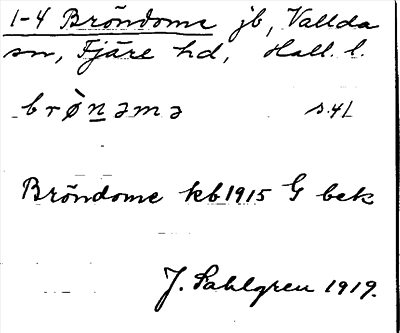 1-4 Bröndome jb, Vallda
sn, Fjäre hd, Hall. l.
brø̀n̲əmə s.41
Bröndome kb 1915 G bek
J. Sahlgren 1919.